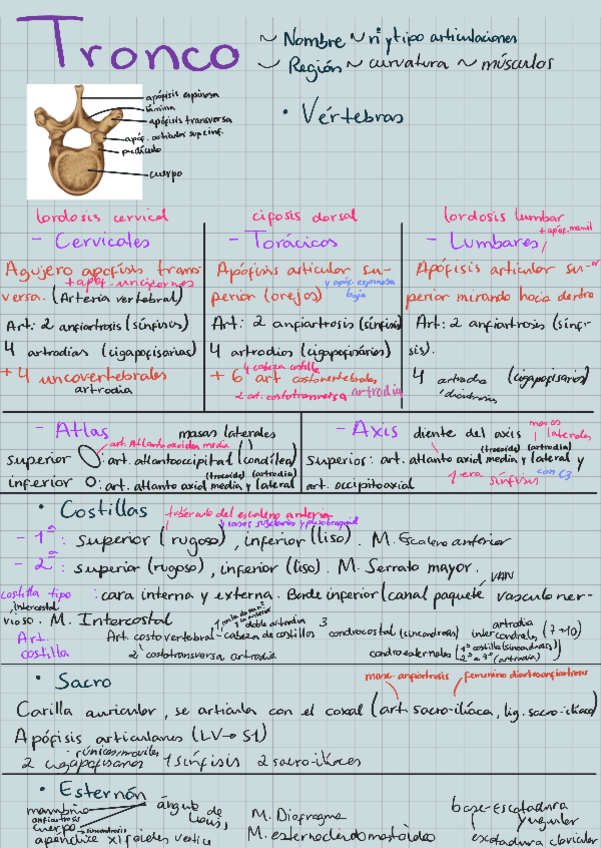 Tronco
~ Nombre ~ nº y tipo articulaciones
~ Región ~ curvatura ~ músculos
apófisis espinosa
lámina
apófisis transversa
apóf. articular sup e inf.
pedículo
cuerpo
• Vértebras
lordosis cervical
- Cervicales
Agujero apofísis trans-
+ apóf. unciformes
versa. (Arteria vertebral)
Art: 2 anfiartrosis (sínfisis)
4 artrodias (cigapofisarias)
+ 4 uncovertebrales
artrodia
cifosis dorsal
- Torácicas
Apófisis articular su-
perior (orejas)
y apóf. espinosa
baja
Art: 2 anfiartrosis (sínfisis)
4 artrodias (cigapofisarias)
4 cabeza costilla
+ 6 art costovertebrales
2 art. costotransversa artrodia
lordosis lumbar
+ apóf. mamil
- Lumbares
Apófisis articular su-
perior mirando hacia dentro
Art: 2 anfiartrosis (sínfi-
sis).
4 artrodia (cigapofisarias)
/diartrosis
- Atlas masas laterales
art. atlantoaxoidea media
superior : art. atlantooccipital (condílea)
(trocoide) (artrodia)
inferior : art. atlanto axial media y lateral
- Axis diente del axis
masas
laterales
(trocoide) (artrodia)
Superior: art. atlanto axial media y lateral y
art. occipitoaxial
1era sínfisis con C3
• Costillas
tubérculo del escaleno anterior
y vasos subclavios y plexo braquial
- 1ª: superior (rugoso), inferior (liso). M. Escaleno anterior
- 2ª: superior (rugoso), inferior (liso). M. Serrato mayor.
VAN
costilla tipo : cara interna y externa. Borde inferior (canal paquete vasculo ner-
intercostal
vioso. M. Intercostal
Art.
costilla
Art. costovertebral - cabeza de costillas
doble artrodia
2 costotransversa artrodia
3 condrocostal (sincondrosis)
artrodia
intercondrales (7-10)
condroesternales (1ª costilla (sincondrosis))
2ª a 7ª (artrodia)
• Sacro
masc - anfiartrosis
femenino diartroanfiartrosis
Carilla auricular, se articula con el coxal (art. sacro-ilíaca, lig. sacro-ilíaco)
Apófisis articulares (LV → S1)
únicas móviles
2 cigapofisarias 1 sínfisis 2 sacro-ilíacas
• Esternón
manubrio
anfiartrosis
cuerpo
sincondrosis
apéndice xifoides vertice
ángulo de
Louis
M. Diafragma
M. esternocleidomastoideo
base - Escotadura
yugular
escotadura clavicular